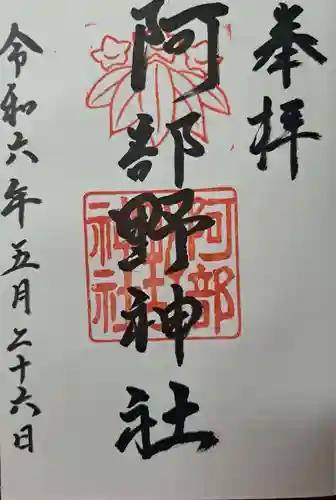 奉拝
阿部野神社
阿部
野神社
令和六年五月二十六日